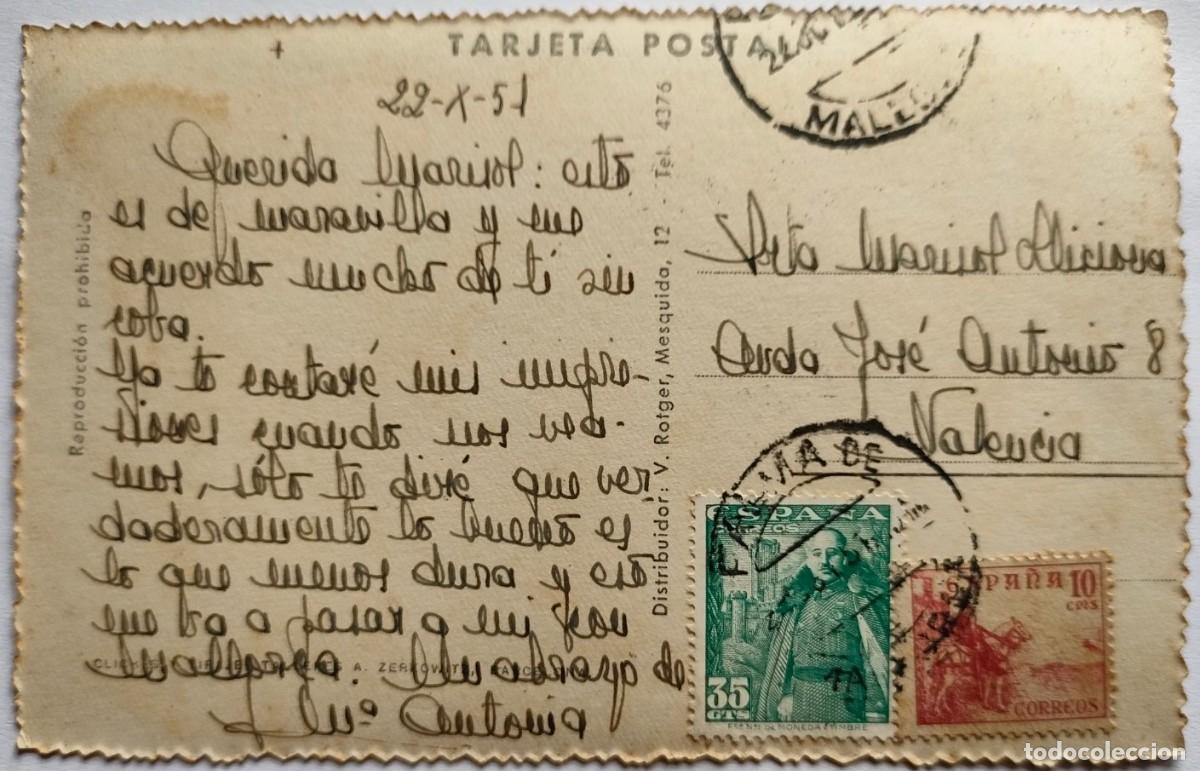 TARJETA POSTAL
22-X-51
Querida Marisol: esto
es de maravilla y me
acuerdo mucho de ti sin
coba.
Ya te contaré mis impre-
siones cuando nos vea-
mos, sólo te diré que ver
daderamente lo bueno es
lo que menos dura y esto
me va a pasar a mi con
Mallorca. Un abrazo de
Mª Antonia
Reproducción prohibida
Distribuidor: V. Rotger, Mesquida, 12 - Tel. 4376
A. ZERKOWITZ
MALLO
Srta Marisol
Avda José Antonio 8
Valencia
PALMA DE
ESPAÑA
CORREOS
35
CTS
ESPAÑA 10
CTS
CORREOS
todocoleccion